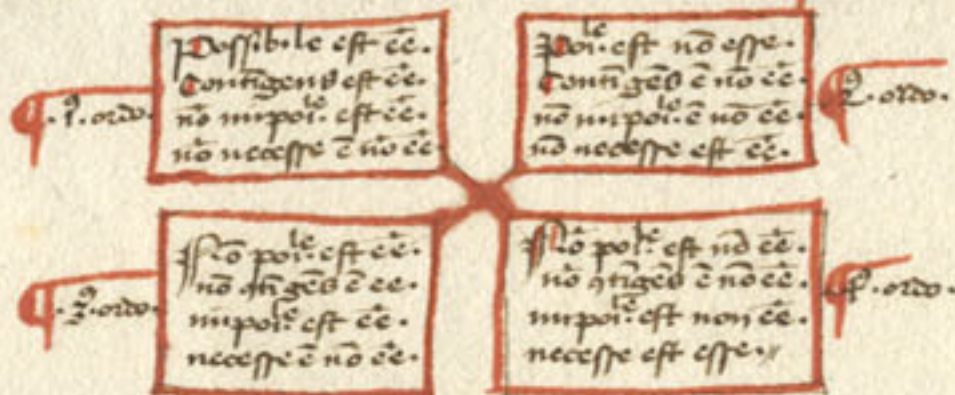 ·1ꝰ· ordo·
Possibile est ēe·
Contīgens est ēe·
nō impoi.le est ēe·
nō necesse ē nō ēe
Poi.le est nō esse·
Contīgēs ē nō ēe·
nō impoi.le ē nō ēe·
nō necesse est ēe·
·2ꝰ· ordo·
·3ꝰ· ordo·
Nō poi.le est ēe·
nō ꝯtīgēs ē ēe·
impoi.le est ēe·
necesse ē nō ēe·
Nō poi.le est nō ēe·
nō ꝯtīgēs ē nō ēe·
impoi.le est non ēe·
necesse est esse·
ordo·